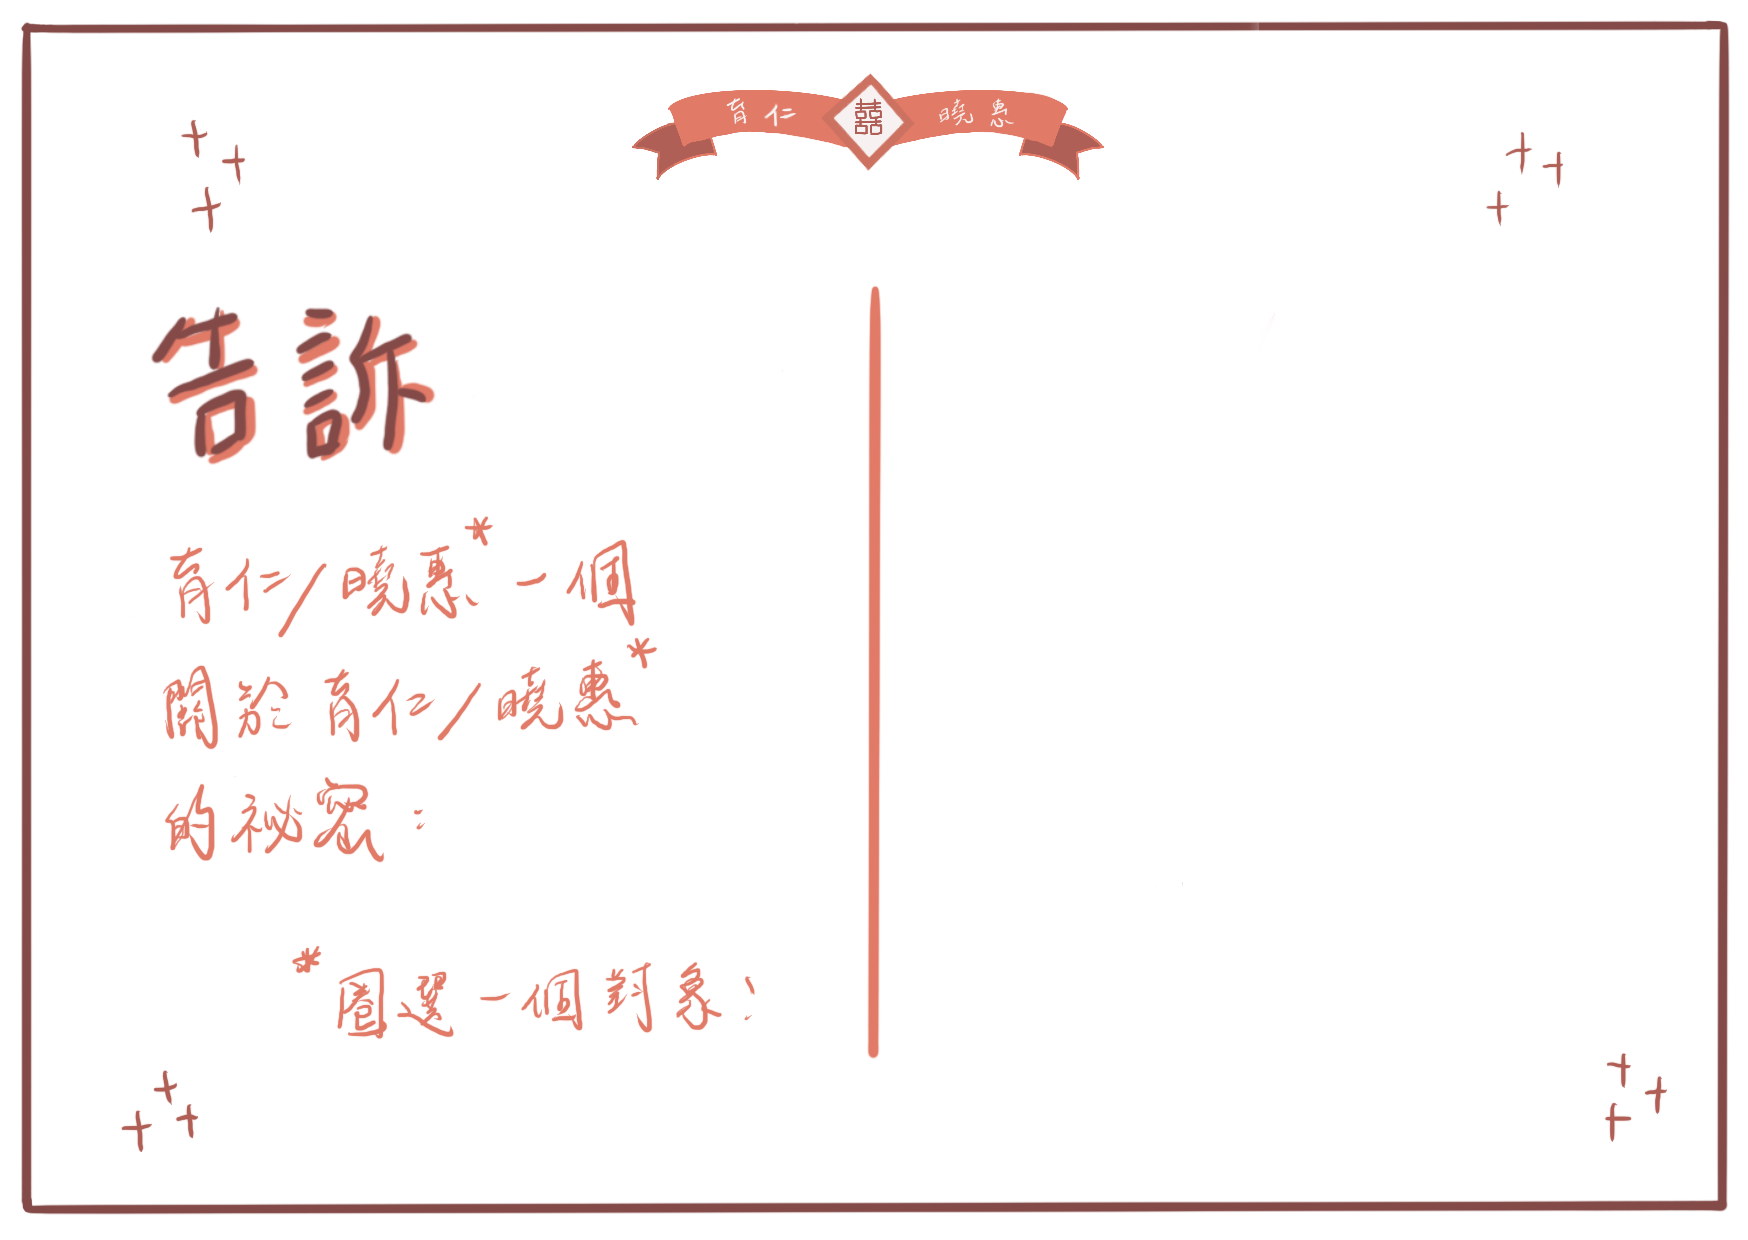 育仁 囍 曉惠
告訴
育仁/曉惠*一個
關於育仁/曉惠*
的祕密:
*圈選一個對象!